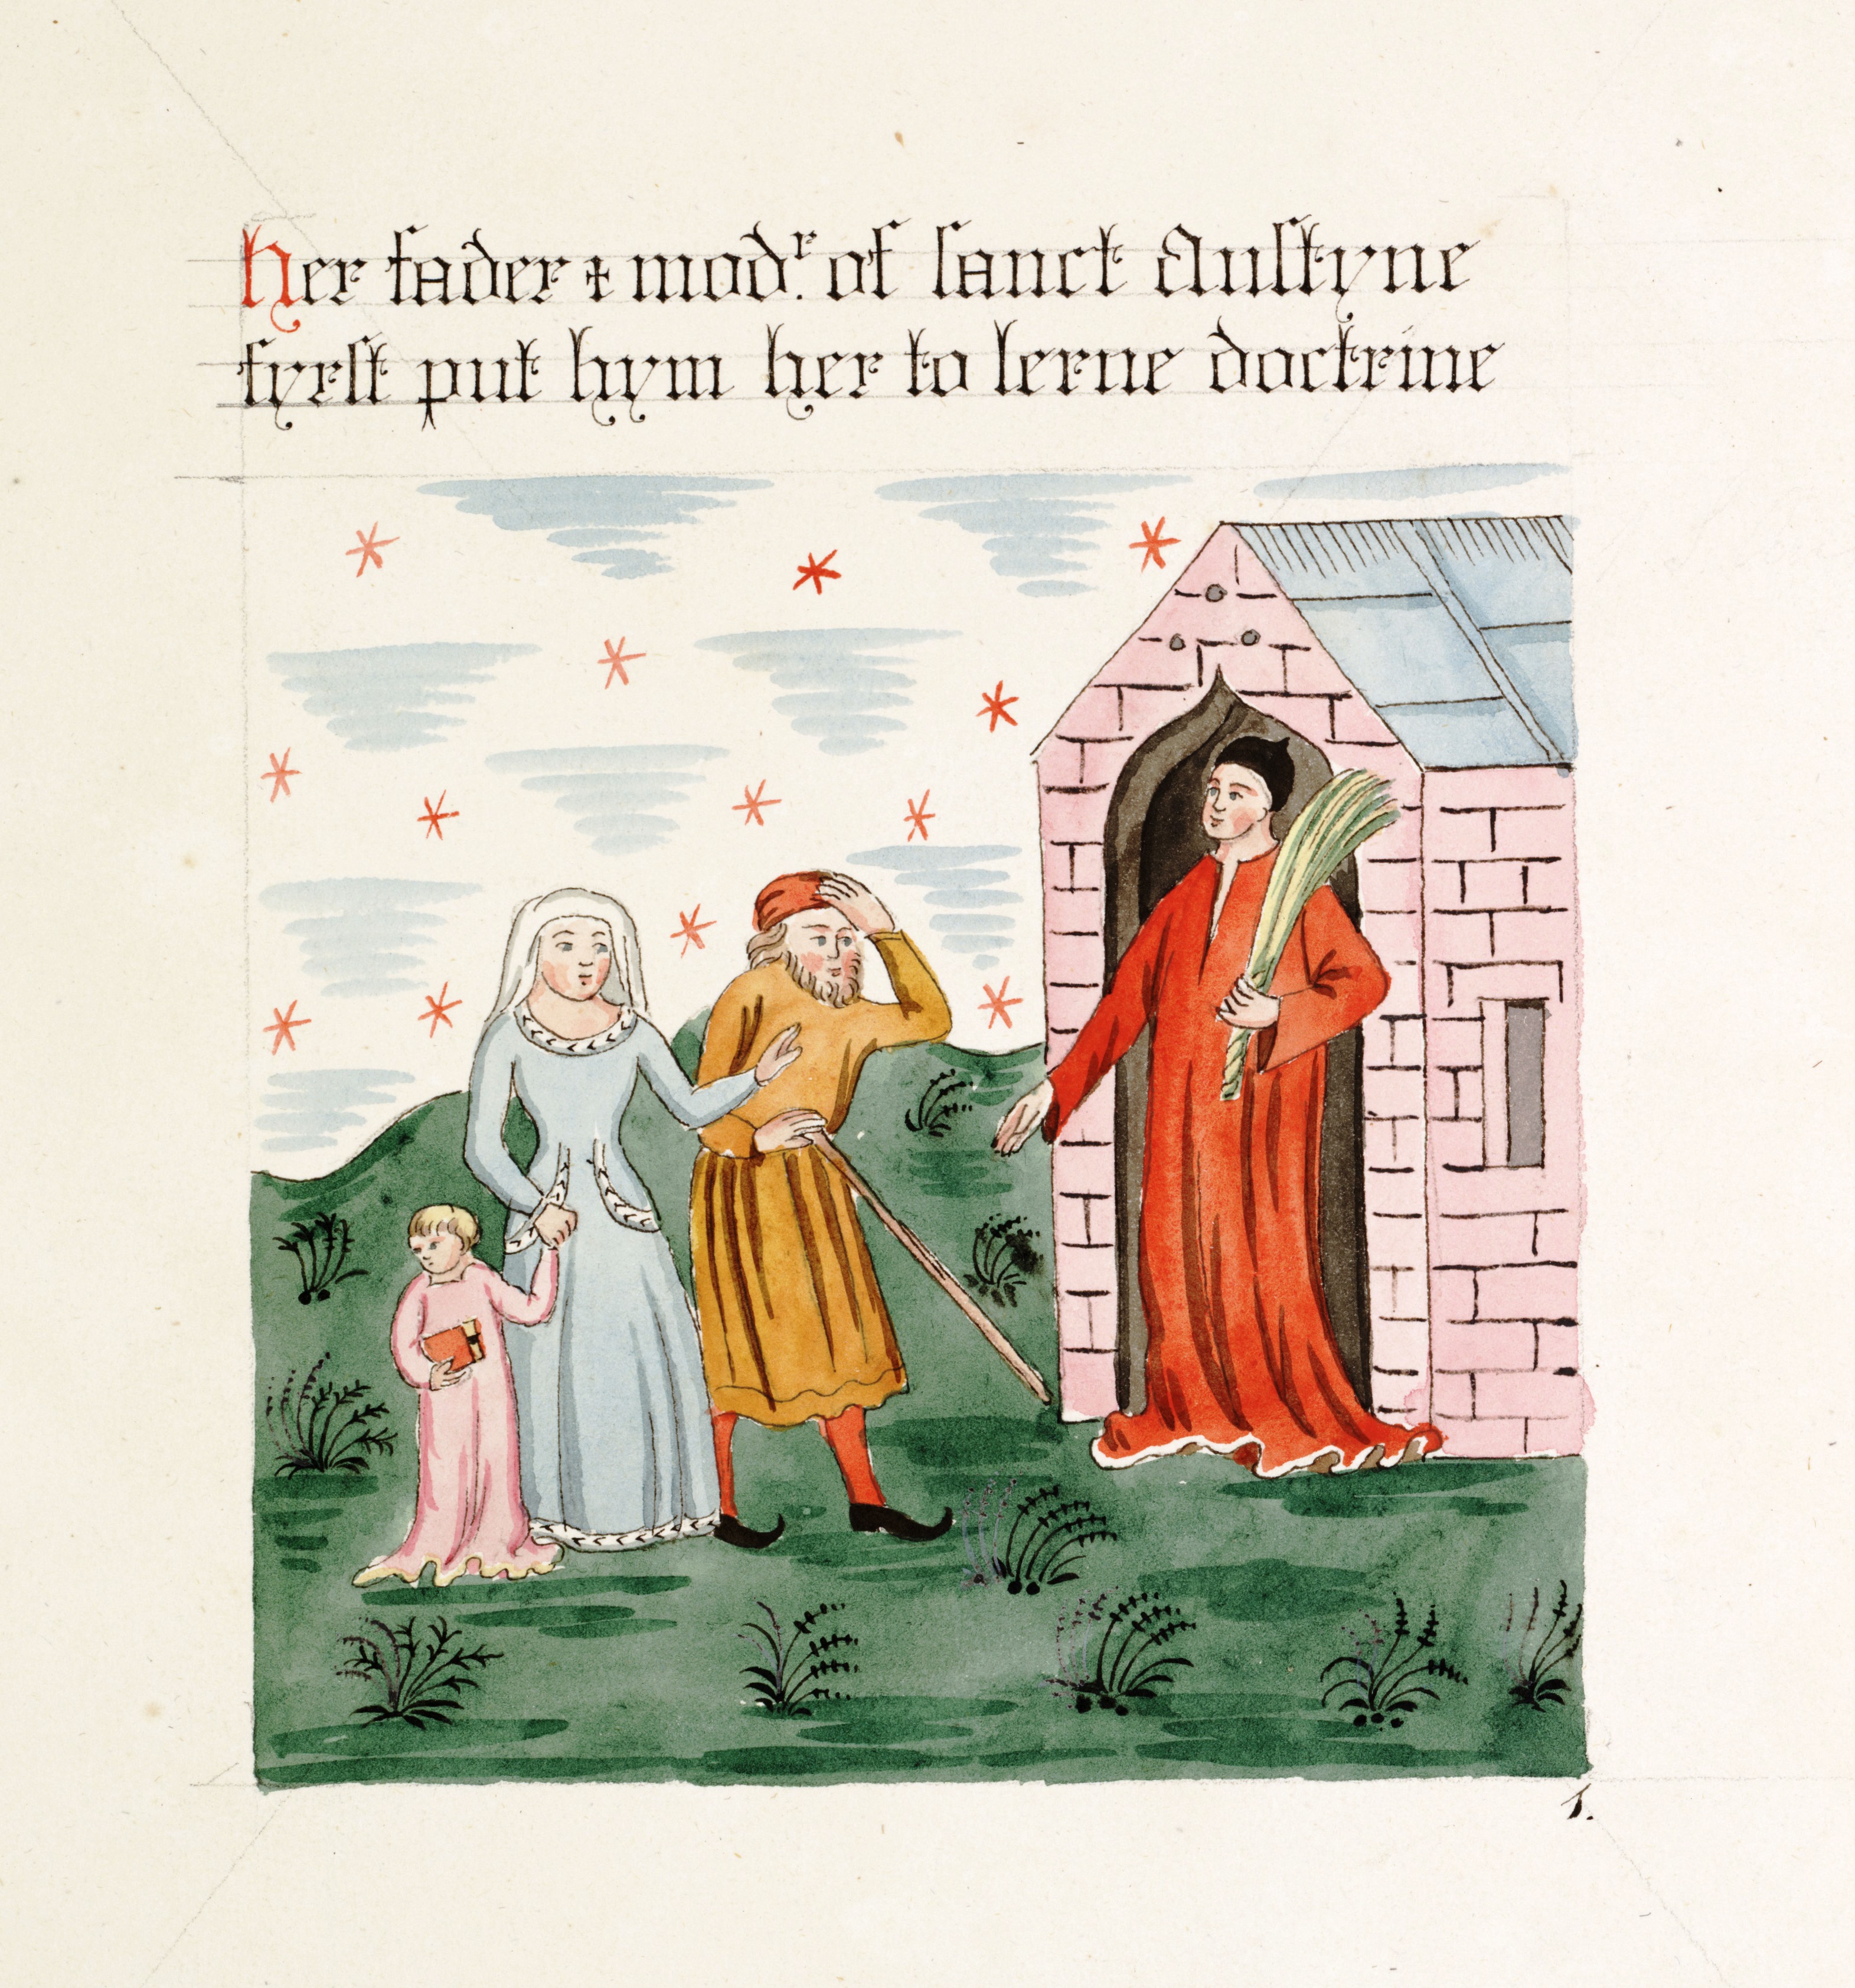 Her fader & modr. of sanct Austyne
fyrst put hym her to lerne doctrine
1.